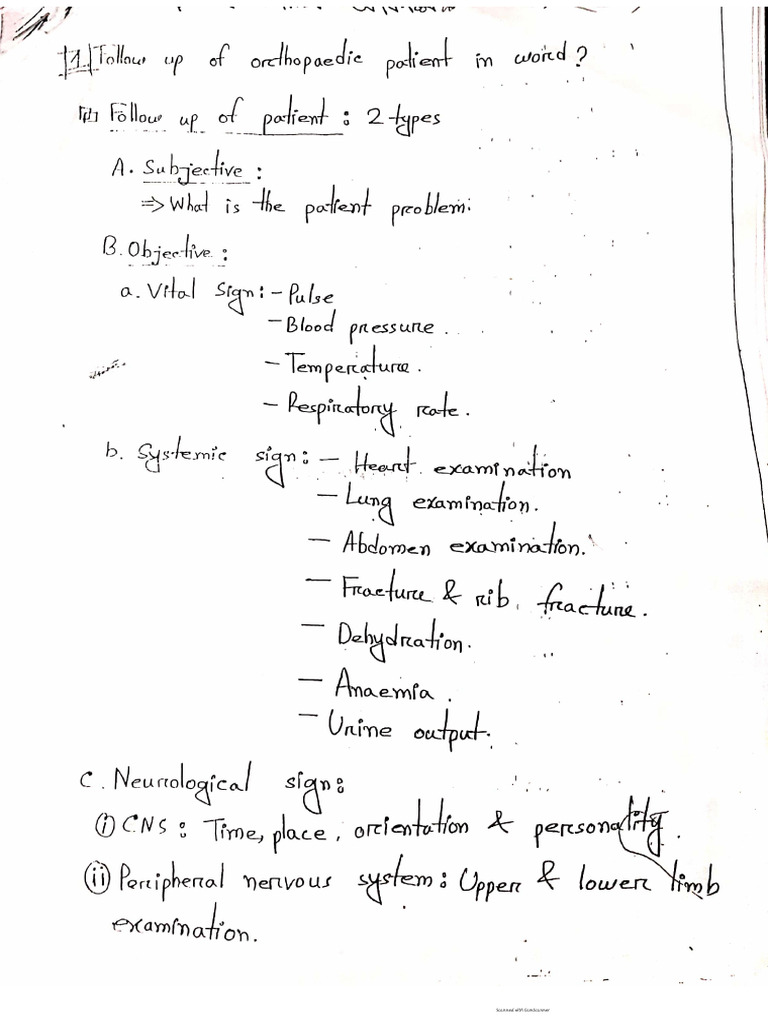 1. Follow up of orthopaedic patient in word?
Follow up of patient: 2 types
A. Subjective:
⇒ What is the patient problem.
B. Objective:
a. Vital Sign: - Pulse
- Blood pressure.
- Temperature.
- Respiratory rate.
b. Systemic sign: - Heart examination
- Lung examination.
- Abdomen examination.
- Fracture & rib fracture.
- Dehydration.
- Anaemia.
- Urine output.
C. Neurological sign:
(i) CNS: Time, place, orientation & personality.
(ii) Peripheral nervous system: Upper & lower limb
examination.
Scanned with CamScanner